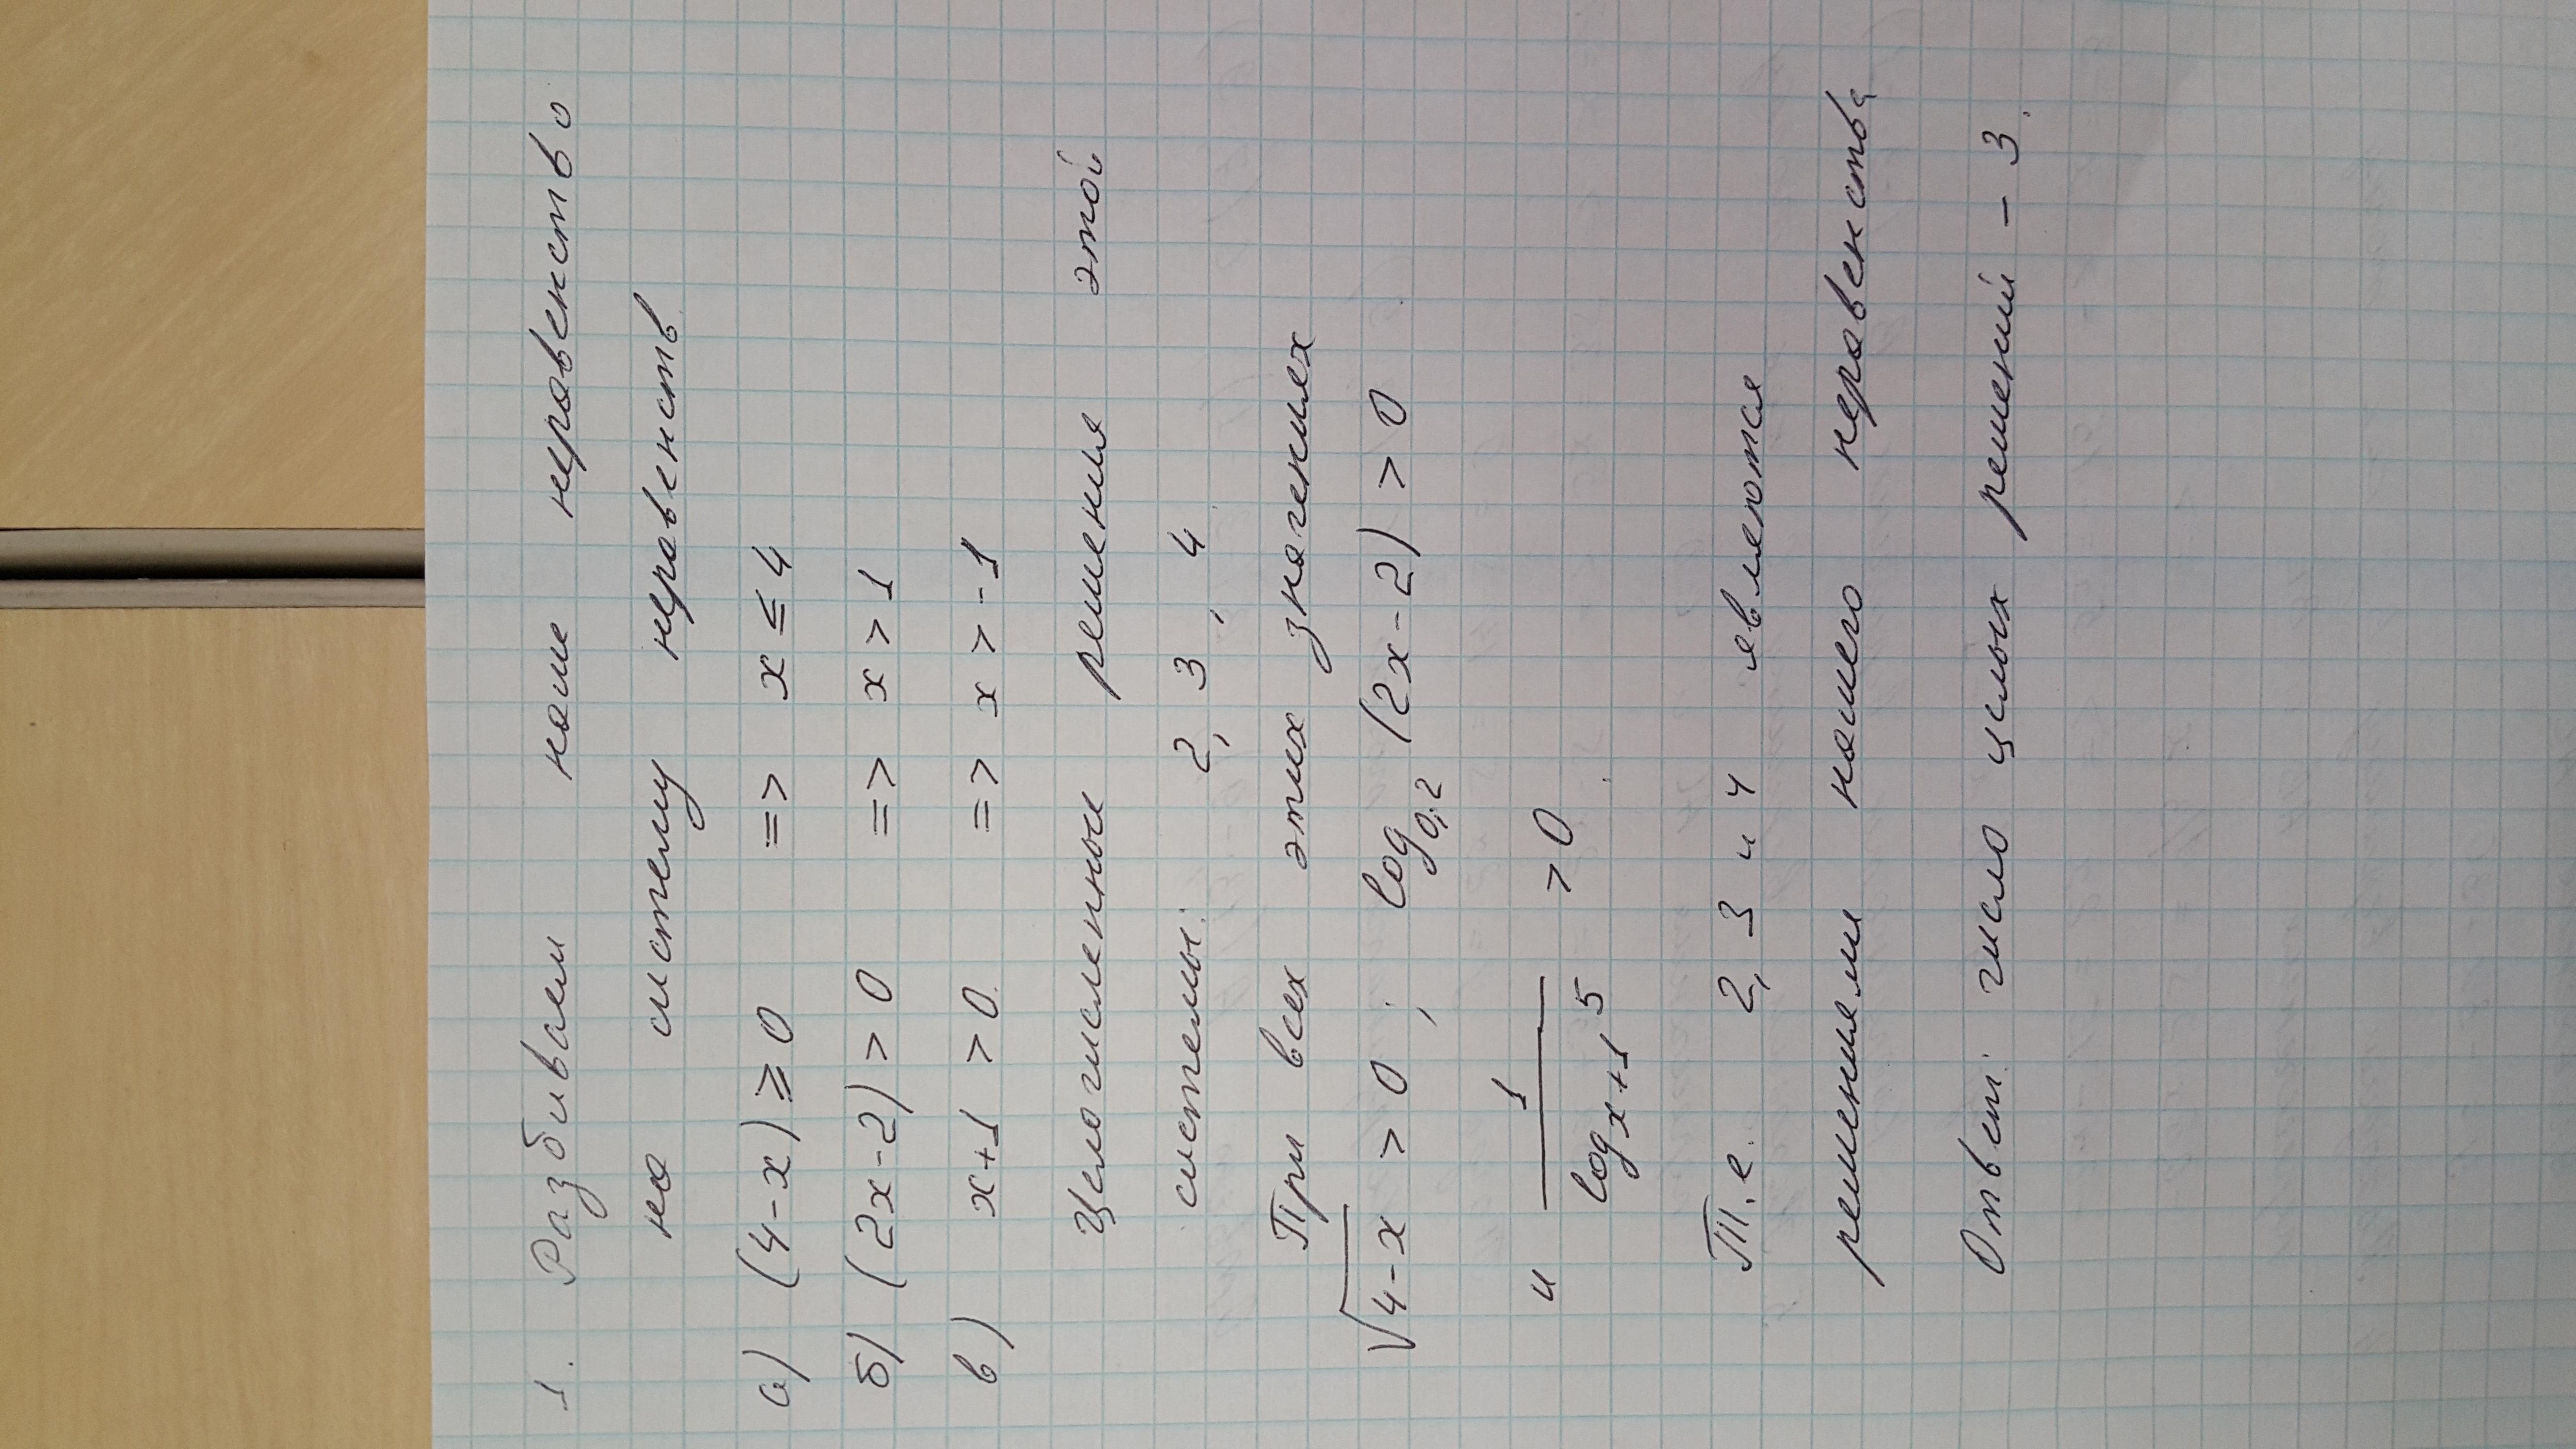 1. Разбиваем наше неравенство
на систему неравенств
а) (4-x) ≥ 0 => x ≤ 4
б) (2x-2) > 0 => x > 1
в) x+1 > 0 => x > -1
Целочисленные решения этой
системы: 2, 3, 4
При всех этих значениях
√4-x > 0 ; log0,2 (2x-2) > 0
и 1/logx+1,5 > 0
Т.е. 2, 3 и 4 являются
решениями нашего неравенства
Ответ: число целых решений - 3.